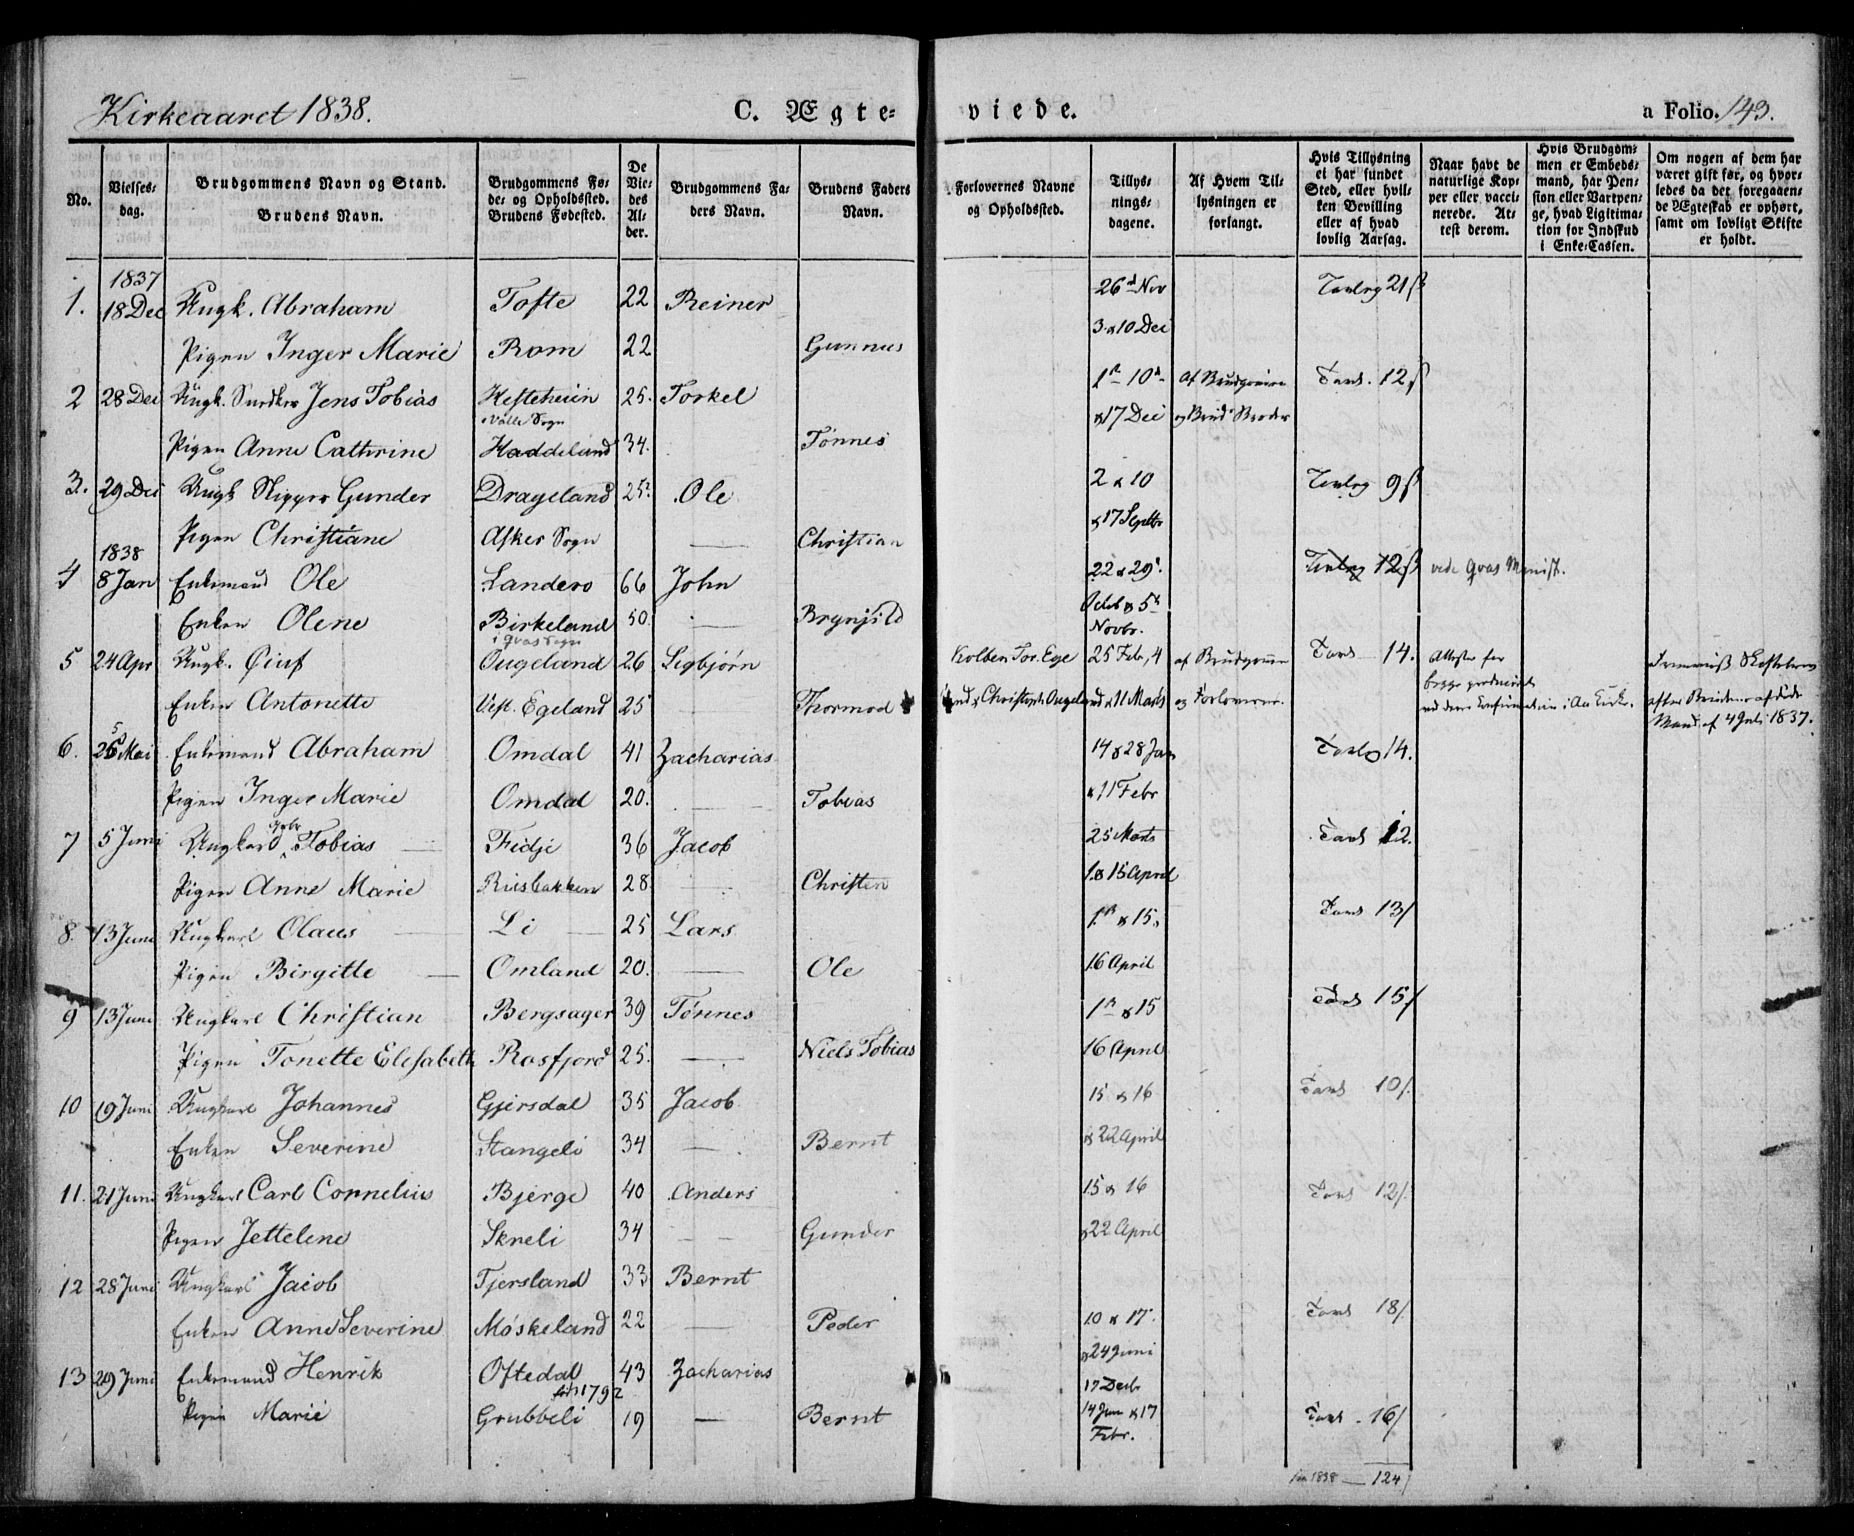 Kirkeaaret 1838.
C. Ægte-
viede.
a Folio. 143.
No.
Vielses-
dag.
Brudgommens Navn og Stand.
Brudens Navn.
Brudgommens Fø-
de- og Opholdssted.
Brudens Fødested.
De
Vie-
des
Al-
der.
Brudgommens Fa-
ders Navn.
Brudens Faders
Navn.
Forlovernes Navne
og Opholdssted.
Tillys-
nings-
dagene.
Af Hvem Til-
lysningen er
forlangt.
Hvis Tillysning
ei har fundet
Sted, eller hvil-
ken Bevilling
eller af hvad
lovlig Aarsag.
Naar havt de
naturlige Kop-
per eller vacci-
nerede. At-
test derom.
Hvis Brudgom-
men er Embeds-
mand, har Pen-
sion eller Vartpen-
ge, hvad Ligitima-
tion for Indskud
i Enke-Cassen.
Om nogen af dem har
været gift før, og hvor-
ledes da det foregaaen-
de Ægteskab er ophørt,
samt om lovligt Skifte
er holdt.
1837
1. 18 Dec Ungk. Abraham Tofte 22 Reiner 26d Nov 21ß
3 & 10 Dec
Pigen Inger Marie Rom 22 Gunnus
2 28 Dec Ungk. Snedker Jens Tobias Hesteheiin 25. Torkel 1ste 10de Af Brudgommen 12ß
i Valle Sogn & 17 Dec og Brud Broder
Pigen Anne Cathrine Haddeland 34. Tønnes
3. 29 Dec Ungk Skipper Gunder Drageland 25 Ole 2 & 10 9ß
& 17 Septbr
Pigen Christiane Asker Sogn Christian
1838
4 8 Jan Enkemand Ole Landero 66 John 22 & 29. 12ß vide Qvas Minist.
Octob & 5te
Enken Olene Birkeland 50. Brynjild Novbr.
i Qvas Sogn
5 24 Apr Ungk. Øiuf Ougeland 26 Sigbjørn Kolben Tor. Ege 25 Febr, 4 af Brudgommen 14. Attester for
begge produceret
Enken Antonette Vest. Egeland 25 Thormod land & Christoph. Ougeland & 11 Marts og Forloverne. ved deres Confirmation i Au Kirke. efter Brudens afdøde
Mand af 4 Juli 1837.
6. 26 Mai Enkemand Abraham Omdal 41 Zacharias 14 & 28 Jan 14.
Pigen Inger Marie Omdal 20. Tobias & 11 Febr
7 5 Juni Ungkarl Tobias Fidje 36 Jacob 25 Marts 12.
Pigen Anne Marie Riisbakken 28 Christen 1. & 15 April
8. 13 Juni Ungkarl Olaus Li 25 Lars 1ste & 15. 13/
Pigen Birgitte Omland 20. Ole 16 April
9 13 Juni Ungkarl Christian Bergsager 39 Tønnes 1ste & 15 15/
Pigen Tonette Elisabeth Rosfjord 25. Niels Tobias 16 April
10 19 Juni Ungkarl Johannes Gjersdal 35 Jacob 15 & 16 10/
Enken Severine Stangeli 34 Bernt & 22 April
11. 21 Juni Ungkarl Carl Cornelius Bjerge 40 Anders 15 & 16 12/.
Pigen Jettelene Skreli 34 Gunder & 22 April
12 28 Juni Ungkarl Jacob Tjersland 33 Bernt
Enken Anne Severine Møskeland 22 Peder 10 & 17. 18/
& 24 Juni
13 29 Juni Enkemand Henrik Oftedal 43 Zacharias 17 Decb
født 1792
Pigen Marie Grubbeli 19 Bernt 14 Jan & 17 16/
Febr.
1838 124/